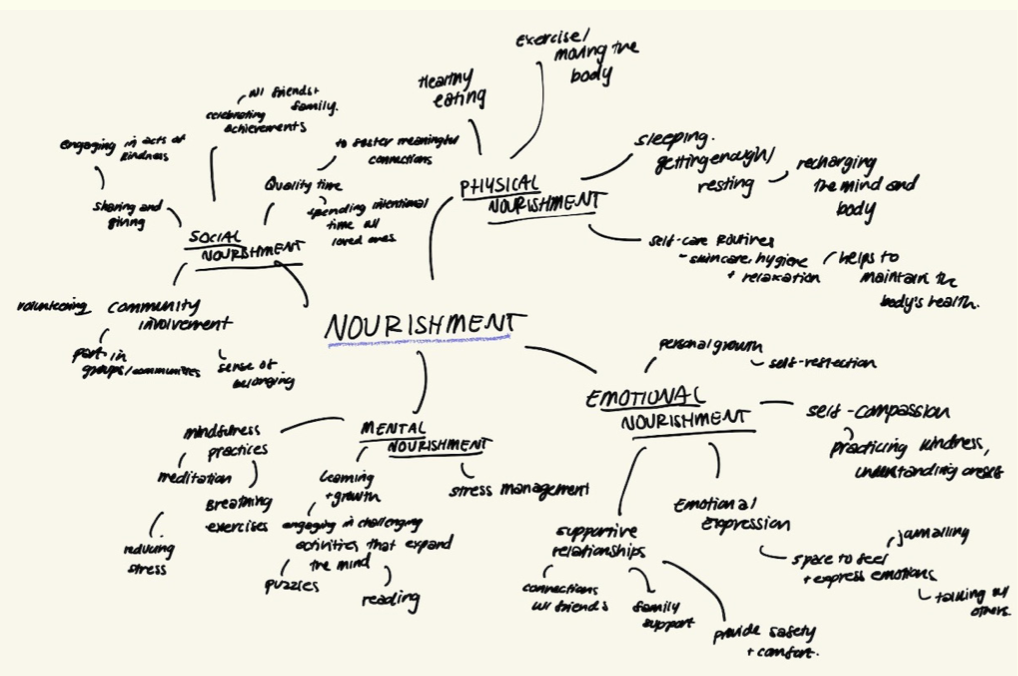 exercise/
moving the
body
Healthy
eating
w/ friends +
family.
celebrating
achievements
engaging in acts of
kindness
to foster meaningful
connections
sleeping.
getting enough/
resting
recharging
the mind and
body
Quality time
PHYSICAL
NOURISHMENT
sharing and
giving
spending intentional
time w/
loved ones
SOCIAL
NOURISHMENT
self-care routines
- skincare, hygiene
+ relaxation
helps to
maintain the
body's health.
volunteering
community
involvement
part in
groups/communities
sense of
belonging
NOURISHMENT
personal growth
self-reflection
EMOTIONAL
NOURISHMENT
self-compassion
practicing kindness,
understanding oneself
mindfulness
practices
meditation
Breathing
exercises
reducing
stress
MENTAL
NOURISHMENT
learning
+ growth
stress management
engaging in challenging
activities that expand
the mind
puzzles
reading
supportive
relationships
connections
w/ friends
family
support
provide safety
+ comfort.
Emotional
Expression
space to feel
+ express emotions
journalling
talking w/
others.